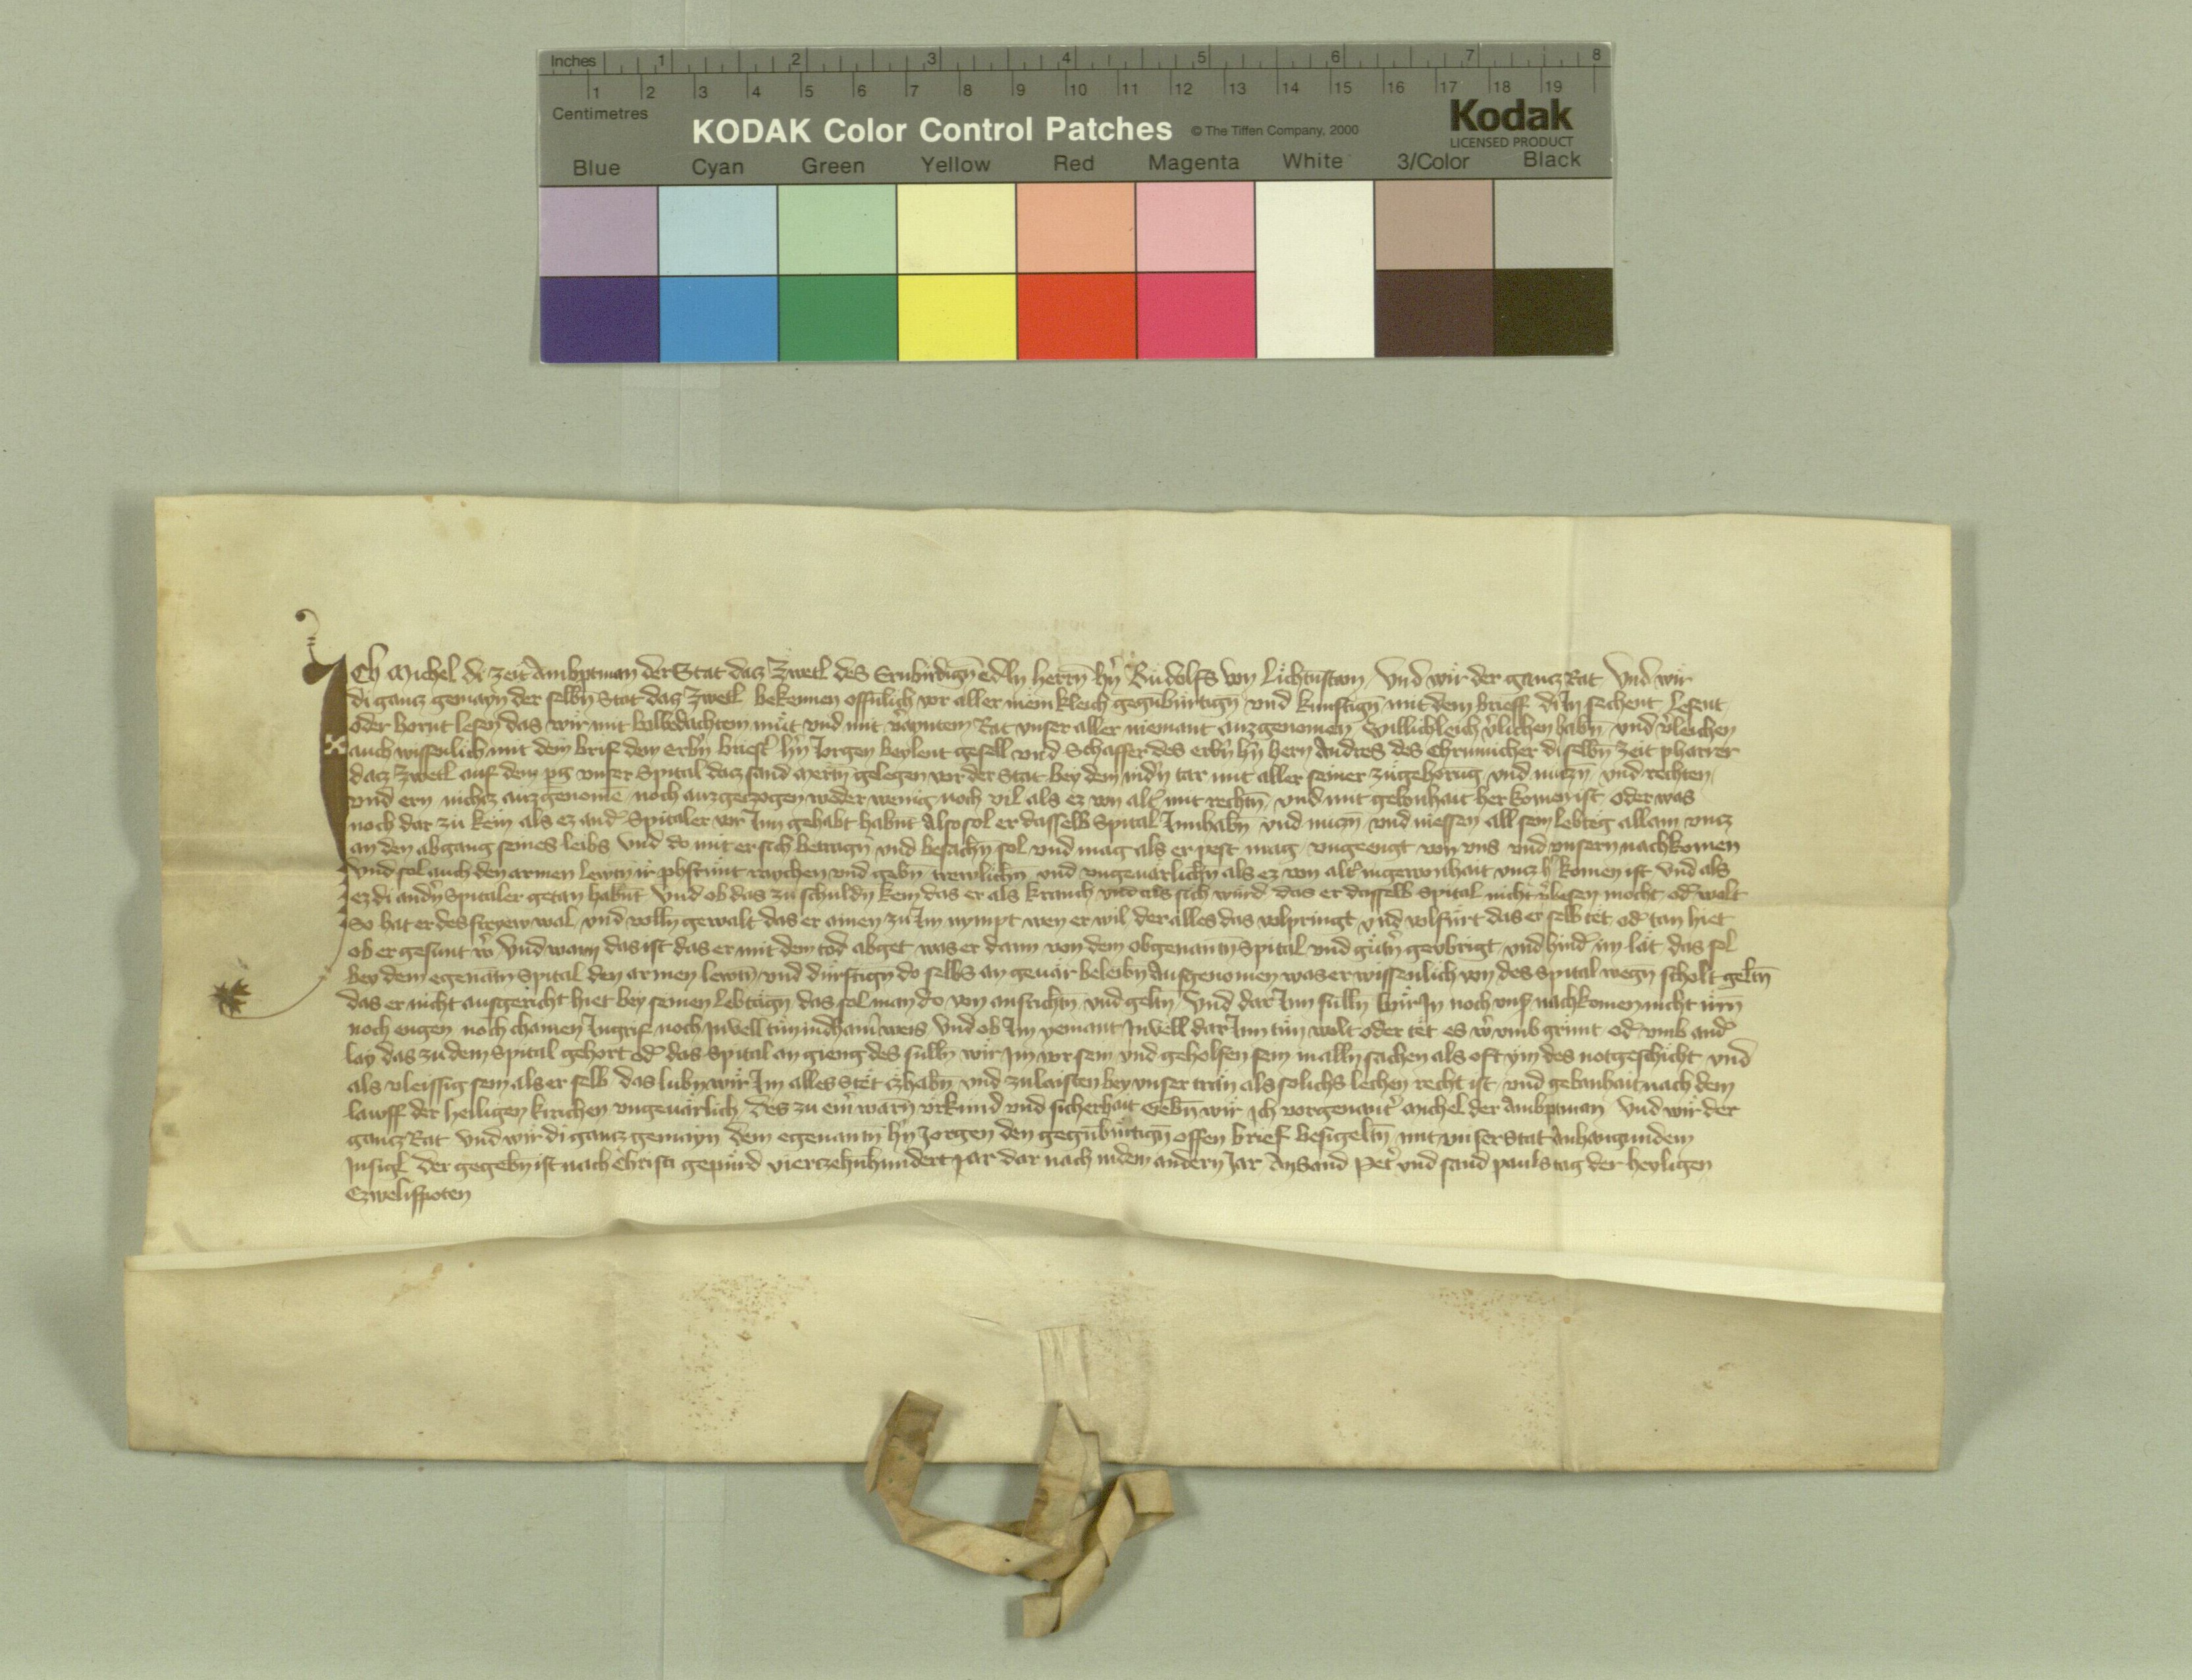 Inches 1 2 3 4 5 6 7 8
1 2 3 4 5 6 7 8 9 10 11 12 13 14 15 16 17 18 19
Centimetres
KODAK Color Control Patches © The Tiffen Company, 2000 Kodak
LICENSED PRODUCT
Blue Cyan Green Yellow Red Magenta White 3/Color Black
Ich Michel di zeit Ambptman der Stat dacz Zwetl des Erwirdign edeln herrn hrn Rudolfs von Lichtnstain Und wir der gancz Rat Und wir
di gancz gemayn der selbn Stat dacz Zwetl bekennen offnlich vor aller mėnkleich gegnbürtign und kunftign mit dem brieff di In sechent lesent
oder hornt lesen das wir mit volbedachtem müt und mit veraintem Rat unser aller niemant auzgenomen Willichleich v̓lichen habn und v̓leichen
auch wissenlich mit dem brif dem erbn̓ briest̓ hrn Jorgen beylent gesell und Schaffer des erbn̓ hrn hern Andres des diselbn zeit pharrer
dacz Zwetl auf dem pg unser Spital dacz sand Mertn gelegen vor der Stat bey dem nidn̓ tar mit aller seiner zügehorug und nuczn und rechten
und ern nichcz auzgenomē noch auzgeczogen weder wenig noch vil als ez von alt̓ mit rechtn und mit gebonhait her komen ist oder was
noch dar zu kem als ez and̓ Spitaler vor Inn gehabt habnt Also sol er dasselb Spital Innhabn und nuczn und niessen all sein lebtėg allain uncz
an den abgang seines leibs Und do mit er sich betragn und besachn sol und mag als er pest mag ungeengt von uns und unsern nachkomen
Und sol auch den armen lewtn ir phfrünt raychen und gebn trewlichn und ungeuärlichn als ez von alt̓ in gewonhait uncz h̓ komen ist Und als
ez di andn̓ Spitaler getan habnt Und ob das zu schuldn kem das er als kranch und als sich würd das er dasselb Spital nicht v̓besen mocht od̓ wolt
So hat er des freyew wal und volln gewalt das er ainen zu Im nympt wen er wil der alles das volpringt und volfürt das er selb tėt od̓ tan hiet
ob er gesunt w̓ Und wann das ist das er mit dem tod abget was er dann von dem obgenantn Spital und gütn̓ geubrigt und hind̓ im lät das sol
bey dem egenātn Spital den armen lewtn und dürftign do selbs an geuär beleibn Ausgenomen was er wissenlich von des Spital wegn scholt geltn
das er nicht ausgericht hiet bey seinen lebtägn das sol man do von ausrichtn und geltn Und dar Inn sülln Wir In noch uns̓ nachkomen nicht irrn
noch engen noch chainen Ingrif noch Invell tün indhain̓ weis Und ob Im yemant Invell dar Inn tün wolt oder tėt es w̓ umb grünt od̓ umb and̓
lay das zu dem Spital gehort od̓ das Spital an gieng des sülln wir Im vor sein und geholfen sein in alln sachen als oft ym des not geschicht und
als vleissig sein als er selb das lubn wir Im alles stėt czhabn und zu laisten bey unser träu als solichs lechen recht ist und gebanhait nach dem
lawff der heiligen kirichen ungeuärlich Des zu ein̓ warn ürkünd und sicherhait Gebn wir ich vorgenant̓ Michel der Ambptman Und wir der
gancz Rat Und wir di gancz gemayn dem egenantn hrn Jorgen den gegnbürtign offen brief besigeltn mit unser Stat Anhangundem
Insigl der gegebn ist nach Christi gepürd vierczehnhundert Jar dar nach in dem andern Jar An Sand Pet̓ und sand Pauls tag der heyligen
Czwelifpoten